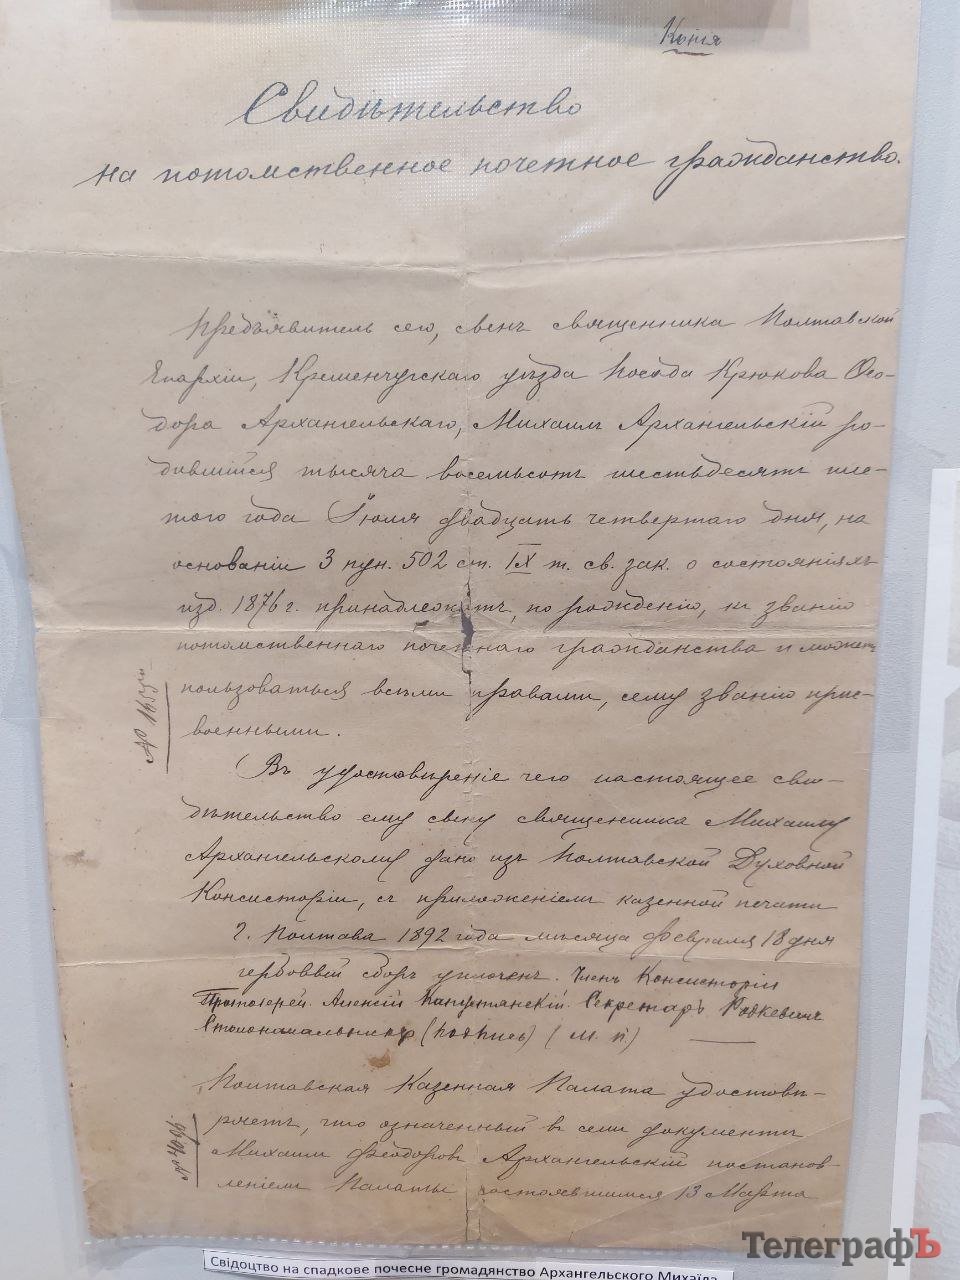 Копія
Свидѣтельство
на потомственное почетное гражданство.
Предъявитель сего, сынъ священника Полтавской
Епархіи, Кременчугскаго уѣзда Посада Крюкова Ѳео-
дора Архангельскаго, Михаилъ Архангельскій ро-
дившійся тысяча восемьсотъ шестьдесятъ ше-
таго года Іюля двадцать четвертаго дня, на
основаніи 3 пун. 502 ст. IX т. св. зак. о состояніяхъ
изд. 1876 г. принадлежитъ, по рожденію, къ званію
потомственнаго почетнаго гражданства и можетъ
пользоваться всѣми правами, сему званію прис-
военными.
Въ удостовѣреніе чего настоящее сви-
дѣтельство ему сыну священника Михаилу
Архангельскому дано изъ Полтавской Духовной
Консисторіи, съ приложеніемъ казенной печати
Г. Полтава 1892 года мѣсяца Февраля 18 дня
гербовый сборъ уплоченъ. Членъ Консисторіи
Протоіерей Алексій Капустянскій. Секретарь Родкевичъ
Столоначальникъ (подпись) (М. П.)
Полтавская Казенная Палата удостовѣ-
ряетъ, что означенный въ семъ документѣ
Михаилъ Феодоровъ Архангельскій постанов-
леніемъ Палаты состоявшимся 13 Марта
№
№
ТелеграфЪ
Свідоцтво на спадкове почесне громадянство Архангельского Михаїла